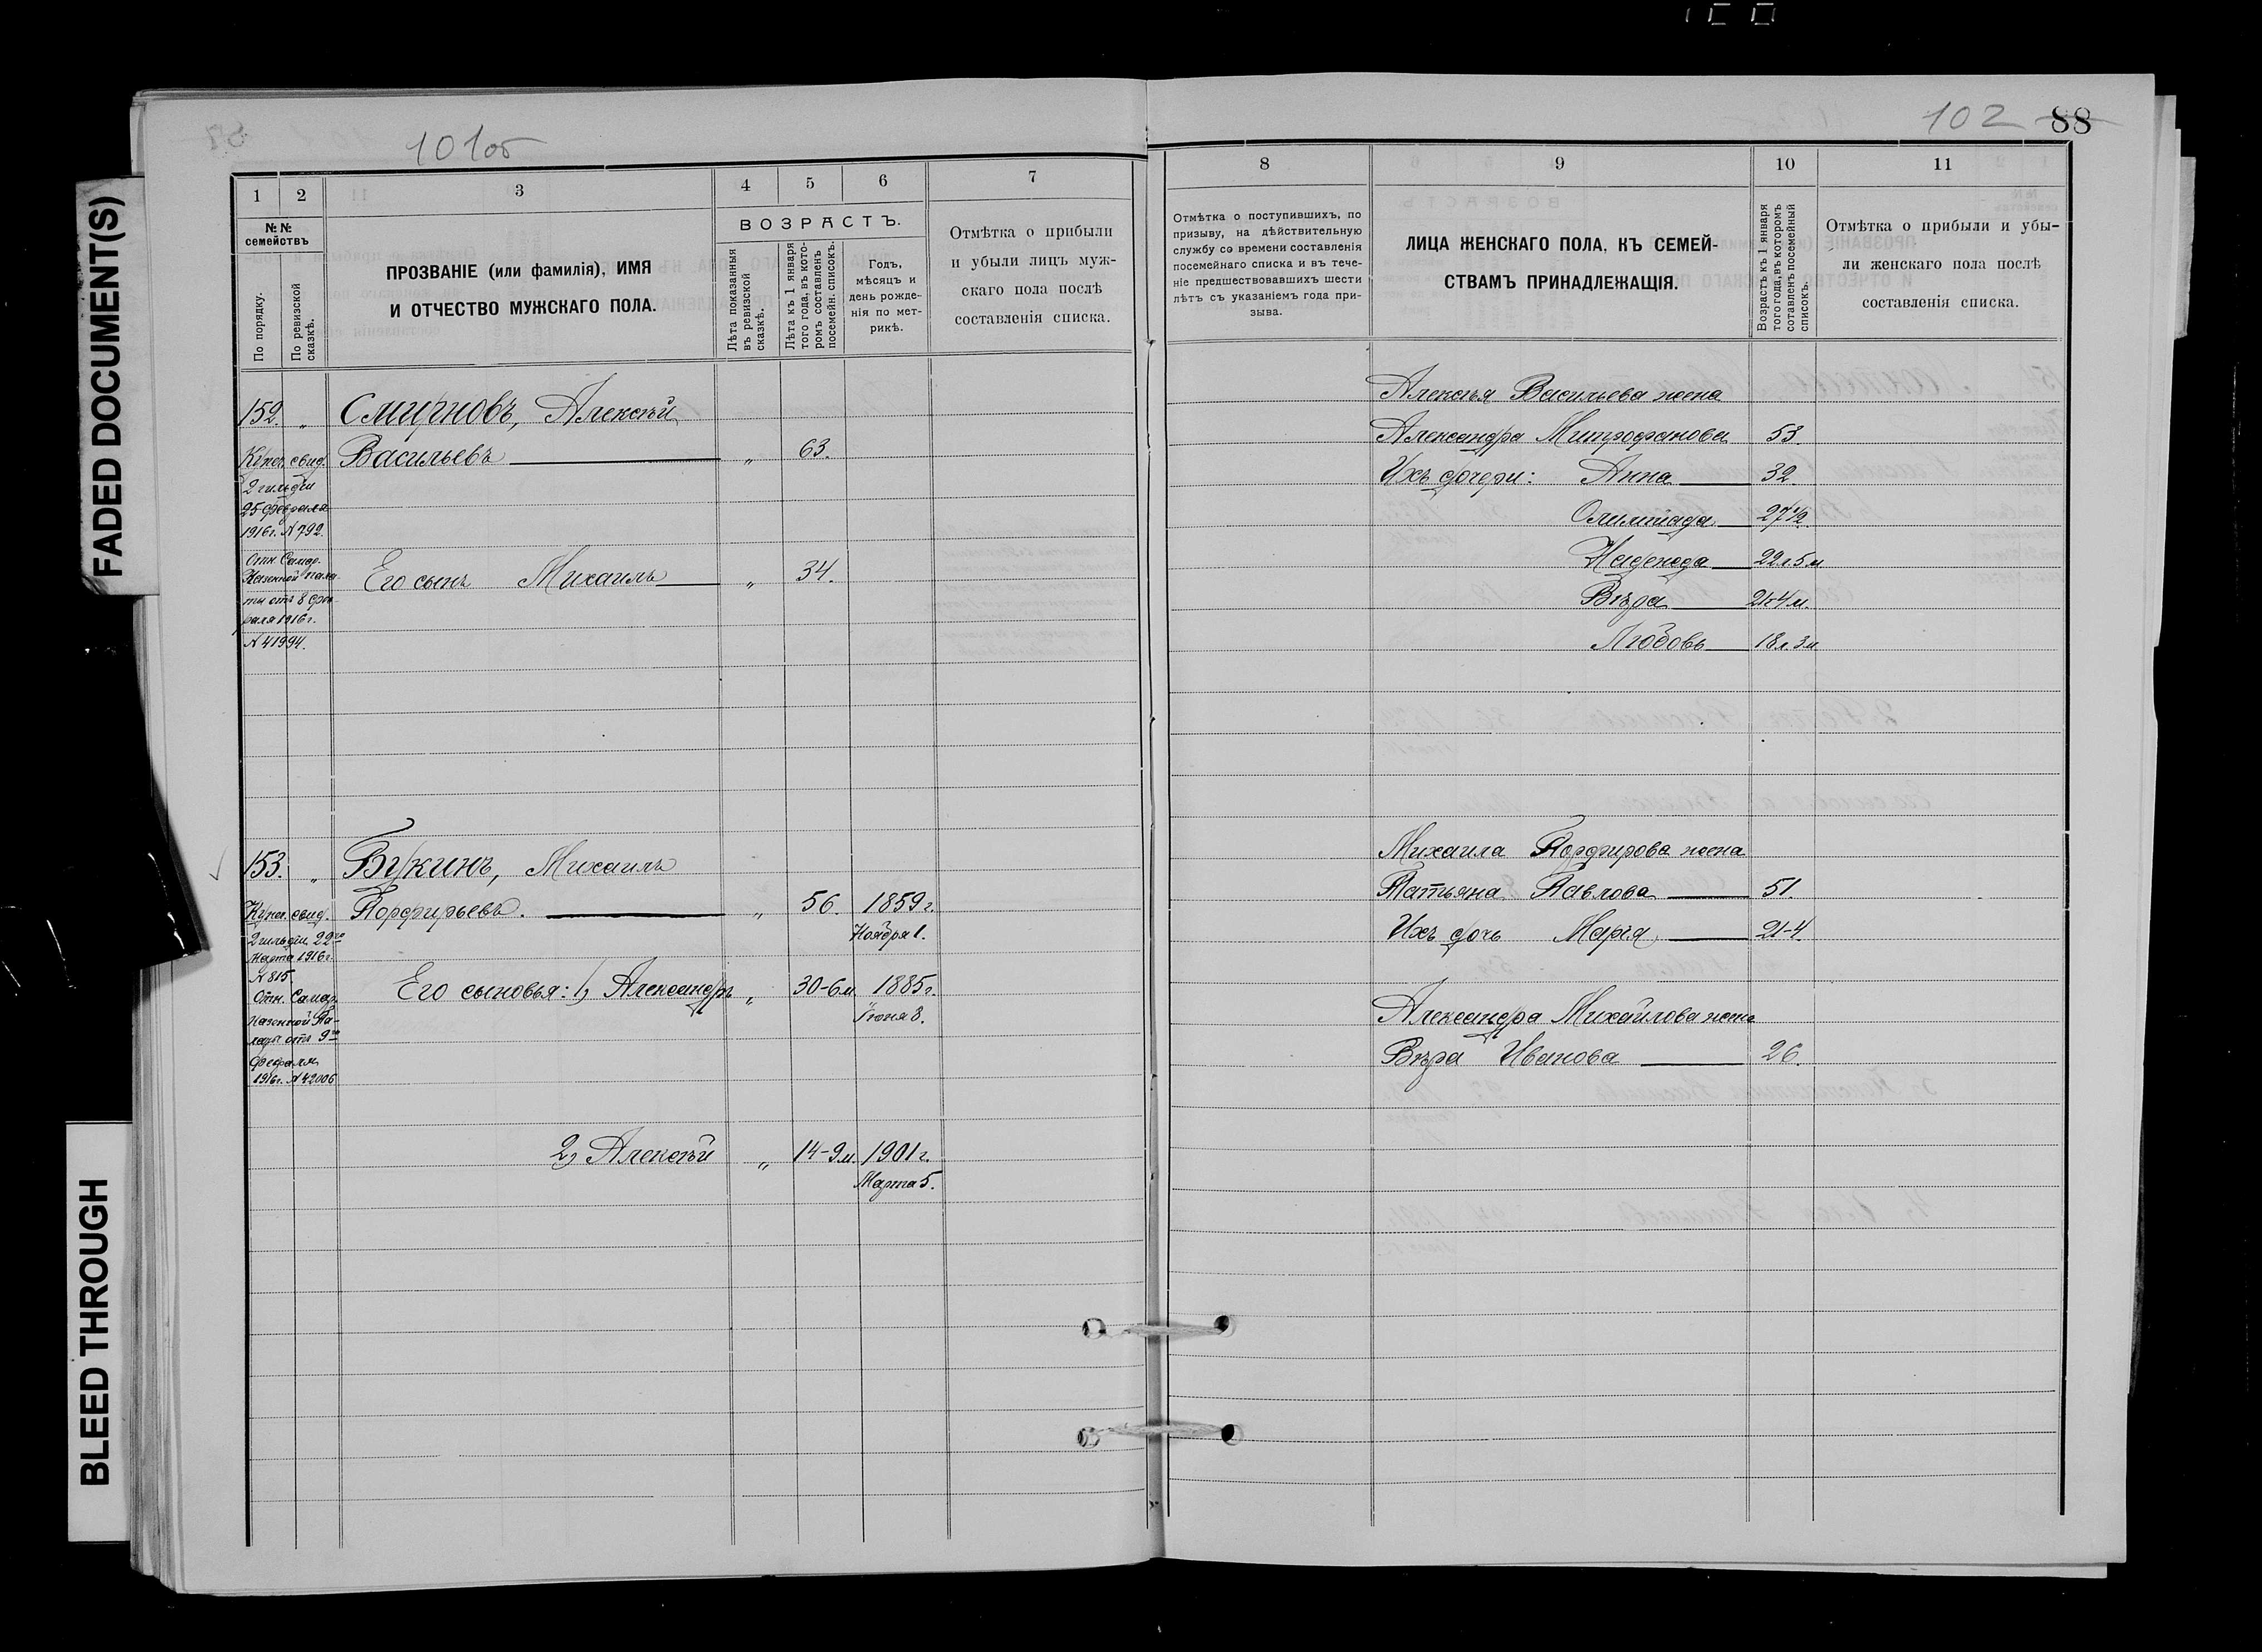 FADED DOCUMENT(S)
BLEED THROUGH
101об
1
2
3
4
5
6
7
№ №
семействъ
По порядку.
По ревизской
сказкѣ.
ПРОЗВАНІЕ (или фамилія), ИМЯ
И ОТЧЕСТВО МУЖСКАГО ПОЛА.
ВОЗРАСТЪ.
Лѣта показанныя
въ ревизской
сказкѣ.
Лѣта къ 1 января
того года, въ кото-
ромъ составленъ
посемейн. списокъ.
Годъ,
мѣсяцъ и
день рожде-
нія по мет-
рикѣ.
Отмѣтка о прибыли
и убыли лицъ муж-
скаго пола послѣ
составленія списка.
152. „ Смирновъ, Алексѣй
Купеч. свид. Васильевъ „ 63.
2 гильдіи
25 февраля
1916 г. № 792.
Отн. Самар.
Казенной пала-
ты отъ 8 фев-
раля 1916 г.
№ 41994.
Его сынъ Михаилъ „ 34.
153. „ Букинъ, Михаилъ
Купеч. свид. Порфирьевъ. „ 56. 1859 г.
Ноября 1.
2 гильдіи 22го
марта 1916 г.
№ 815
Отн. Самар.
Казенной Па-
латы отъ 9го
февраля
1916 г. № 42006
Его сыновья: 1) Александръ „ 30-6м. 1885 г.
Іюня 8.
2) Алексѣй „ 14-9м. 1901 г.
Марта 5.
102 88
8
9
10
11
Отмѣтка о поступившихъ, по
призыву, на дѣйствительную
службу со времени составленія
посемейнаго списка и въ тече-
ніе предшествовавшихъ шести
лѣтъ съ указаніемъ года при-
зыва.
ЛИЦА ЖЕНСКАГО ПОЛА, КЪ СЕМЕЙ-
СТВАМЪ ПРИНАДЛЕЖАЩІЯ.
Возрастъ къ 1 января
того года, въ которомъ
сотавленъ посемейный
списокъ.
Отмѣтка о прибыли и убы-
ли женскаго пола послѣ
составленія списка.
Алексѣя Васильева жена
Александра Митрофанова 53.
Ихъ дочери: Анна 32.
Олимпіада 27 1/2.
Надежда 22 л. 5 м.
Вѣра 21-4 м.
Любовь 18 л. 3 м.
Михаила Порфирова жена
Татьяна Павлова 51.
Ихъ дочь Марія 21-4.
Александра Михайлова жена
Вѣра Иванова 26.